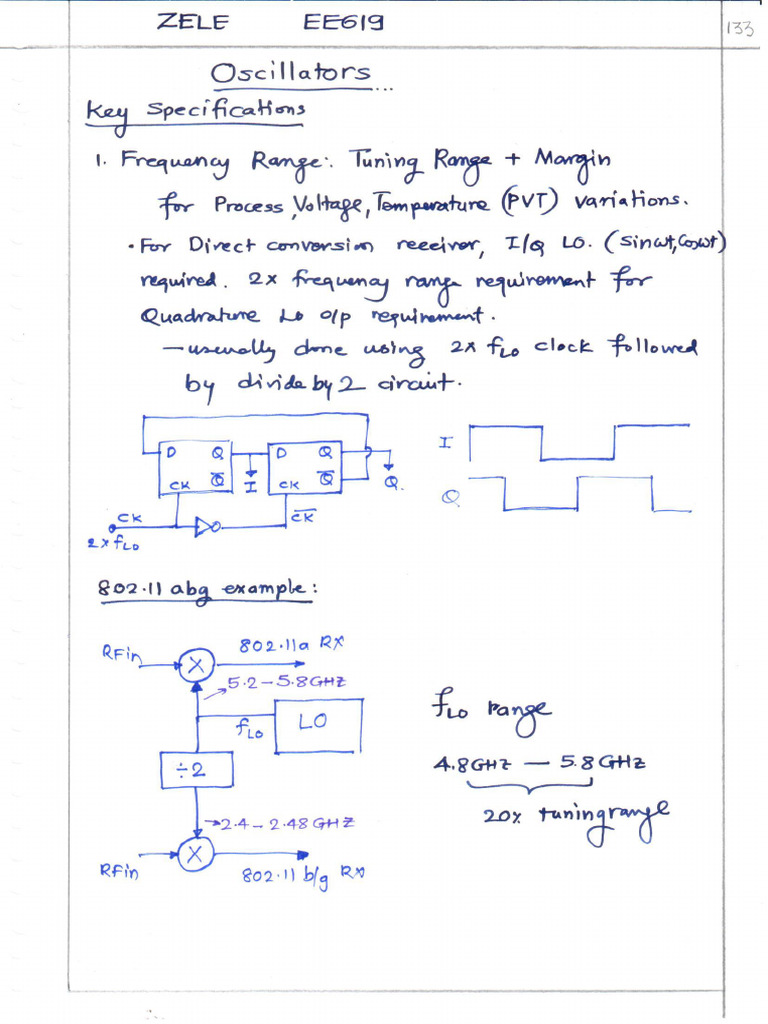 ZELE EE619
133
Oscillators...
Key Specifications
1. Frequency Range: Tuning Range + Margin
for Process, Voltage, Temperature (PVT) variations.
• For Direct conversion receiver, I/Q LO. (Sinωt, Cosωt)
required. 2x frequency range requirement for
Quadrature LO o/p requirement.
— usually done using 2x fLO clock followed
by divide by 2 circuit.
D Q D Q I
Q̅ Q̅
CK I CK Q. Q
CK C̅K̅
2x fLO
802.11 abg example:
RFin X 802.11a RX
5.2 – 5.8 GHZ
fLO LO fLO range
÷2 4.8GHZ — 5.8 GHZ
2.4 – 2.48 GHZ 20% tuning range
X
RFin 802.11 b/g RX